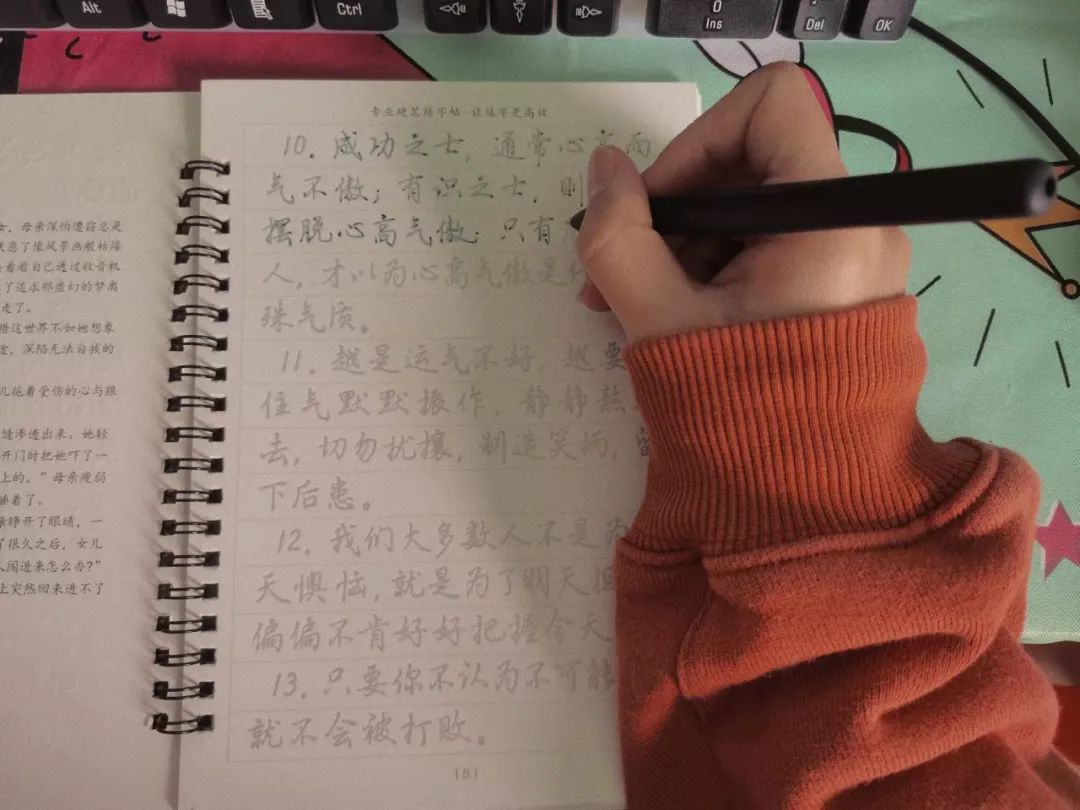 Alt
Ctrl
0
Ins
Del
OK
女，母亲深怕遭窃总是
厌恶了像风景画般枯燥
看着自己透过收音机
了追求那虚幻的梦离
走了。
悟这世界不如她想象
途，深陷无法自拔的
儿拖着受伤的心与狼
缝渗透出来。她轻
开门时把她吓了一
上的。”母亲瘦弱
睡着了。
亲睁开了眼睛，一
了很久之后，女儿
人闯进来怎么办？”
上突然回来进不了
专业硬笔练字帖 让练字更高效
10. 成功之士，通常心高而
气不傲；有识之士，则
摆脱心高气傲；只有
人，才以为心高气傲是
殊气质。
11. 越是运气不好，越要
住气默默振作，静静熬
去，切勿扰攘，制造笑柄，
下后患。
12. 我们大多数人不是为
天懊恼，就是为了明天担
偏偏不肯好好把握今天
13. 只要你不认为不可能
就不会被打败。
(5)